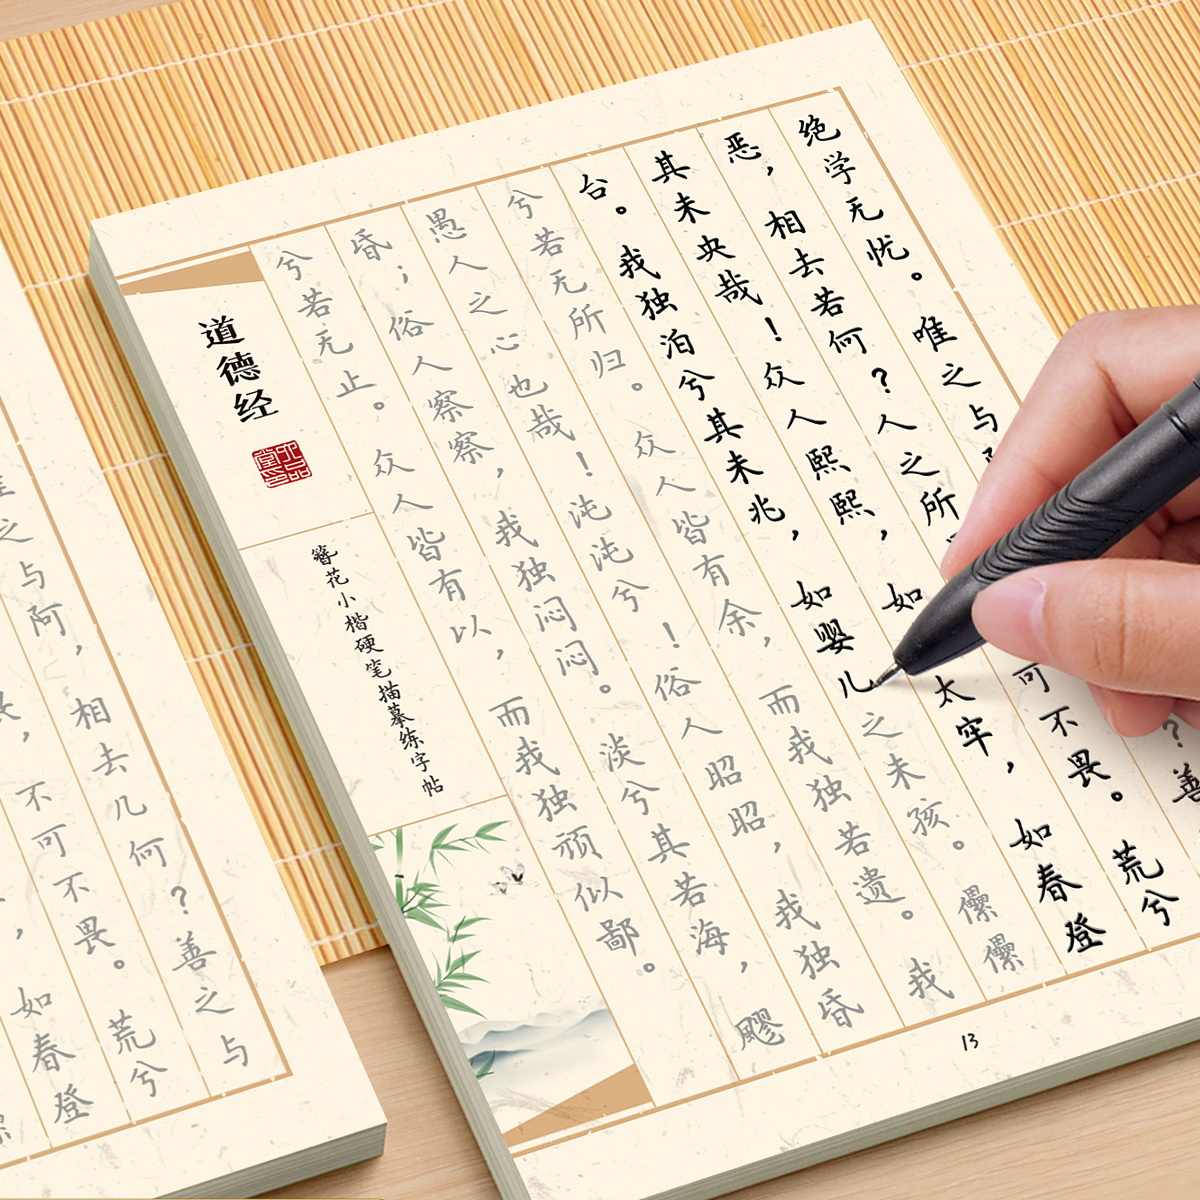 绝学无忧。唯之与
？善
恶，相去若何？人之所
可不畏。荒兮
其未央哉！众人熙熙，如
太牢，如春登
台。我独泊兮其未兆，如婴儿之未孩。儽儽
兮若无所归。众人皆有余，而我独若遗。我
愚人之心也哉！沌沌兮！俗人昭昭，我独昏
昏；俗人察察，我独闷闷。淡兮其若海，飂
兮若无止。众人皆有以，而我独顽似鄙。
道德经
六品堂印
簪花小楷硬笔描摹练字帖
13
之与阿，相去几何？善之与
，不可不畏。荒兮
，如春登